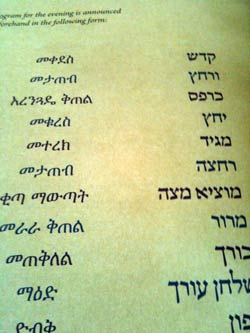 ogram for the evening is announced
forehand in the following form:
መቀደስ קדש
መታጠብ ורחץ
አረንጓዴ ቅጠል כרפס
መቁረስ יחץ
መተረክ מגיד
መታጠብ רחצה
ቂጣ ማውጣት מוציא מצה
መራራ ቅጠል מרור
መጠቅለል כורך
ማዕድ שלחן עורך